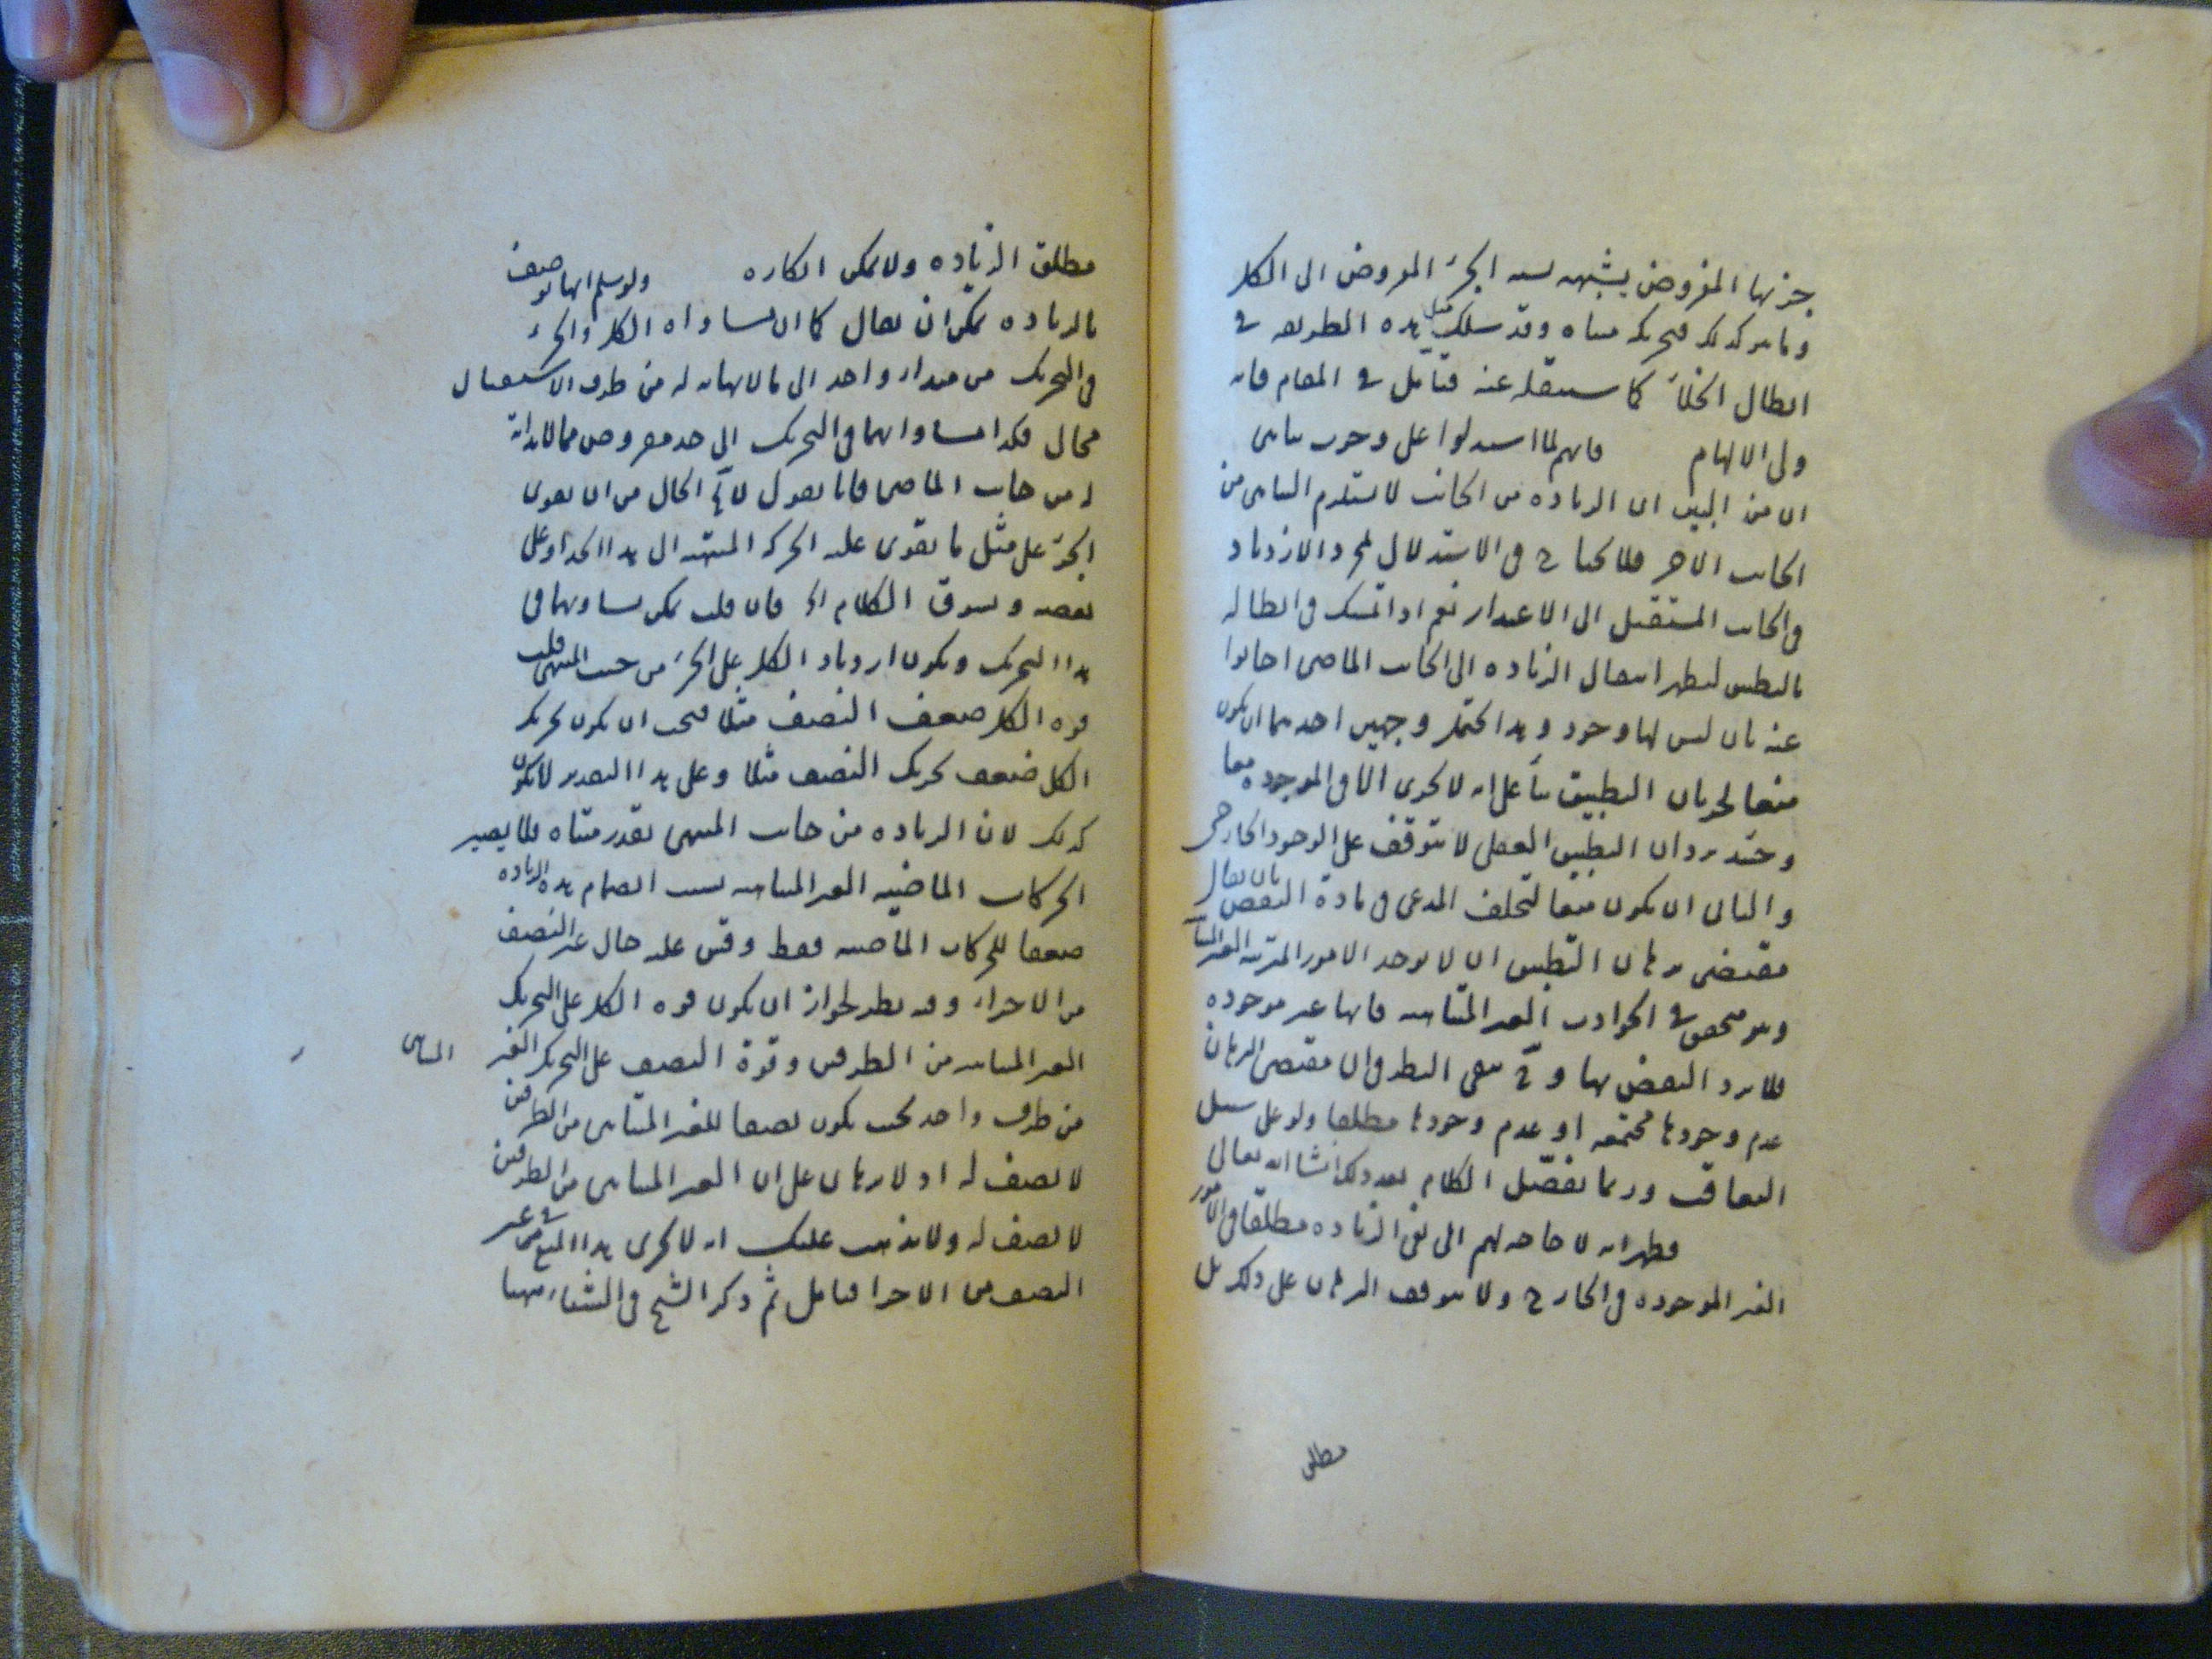 جزئها المفروض يشبهه نسبة الجزء المفروض الى الكل
وما هو كذلك فتحريكه متناه وقد سلك مثل هذه الطريقة في
ابطال الخلأ كما سننقله عنه فتأمل في المقام فانه
ولى الالهام فانهم لما استدلوا على وجوب تناهى
ان من البين ان الزيادة من الجانب لا يستلزم التناهى من
الجانب الاخر فلا يحتاج في الاستدلال لمجرد الازدياد
في الجانب المستقبل الى الاعتذار نعم اذا تمسك في ابطاله
بالتطبيق ليظهر انتقال الزيادة الى الجانب الماضى اجابوا
عنه بان ليس لها وجود وهذا يحتمل وجهين احدهما ان يكون
منعا لجريان التطبيق بناء على انه لا يجرى الا في الموجودة معا
وحينئذ يرد ان التطبيق العقلى لا يتوقف على الوجود الخارجى
والثانى ان يكون منعا لتخلف المدعى في مادة النقض بان يقال
مقتضى برهان التطبيق ان لا يوجد الامور المترتبة الغير المتناهية
وهو متحقق في الحوادث الغير المتناهية فانها غير موجودة
فلا يرد النقض بها وح يبقى النظر في ان مقتضى البرهان
عدم وجودها مجتمعة او عدم وجودها مطلقا ولو على سبيل
التعاقب وربما نفصل الكلام بعد ذلك انشا الله تعالى
فظهر انه لا حاجة لهم الى نفى الزيادة مطلقا في الامور
الغير الموجودة في الخارج ولا يتوقف البرهان على ذلك بل
مطلق
مطلق الزيادة ولا يمكن انكاره ولو سلم انها توصف
بالزيادة يمكن ان يقال كما ان مساواة الكل والجزء
في التحريك من مبداء واحد الى مالا نهاية له من طرف الاستقبال
محال فكذا مساواتهما في التحريك الى حد مفروض مما لا بداية
له من جانب الماضى فانا نقول لا يخ الحال من ان يقوى
الجزء على مثل ما يقوى عليه الحركة المنتهية الى هذا الحد او على
بعضه ونسوق الكلام الخ فان قلت يمكن تساويهما في
هذا التحريك ويكون ازدياد الكل على الجزء من حيث المنتهى قلت
قوة الكل ضعف النصف مثلا فيجب ان يكون تحريك
الكل ضعف تحريك النصف مثلا وعلى هذا التقدير لا يكون
كذلك لان الزيادة من جانب المنتهى بقدر متناه فلا يصير
الحركات الماضيه الغير المتناهية بسبب انضمام هذه الزيادة
ضعفا للحركات الماضية فقط وقس عليه حال غير النصف
من الاجزاء وفيه نظر لجواز ان يكون قوة الكل على التحريك
الغير المتناهية من الطرفين وقوة النصف على التحريك الغير المتناهى
من طرف واحد بحيث يكون نصفا للغير المتناهى من الطرفين
لا نصف له اذ لا برهان على ان الغير المتناهى من الطرفين
لا نصف له ولا يذهب عليك انه لا يجرى هذا المنع في غير
النصف من الاجزا فتأمل ثم ذكر الشيخ في الشفاء ههنا